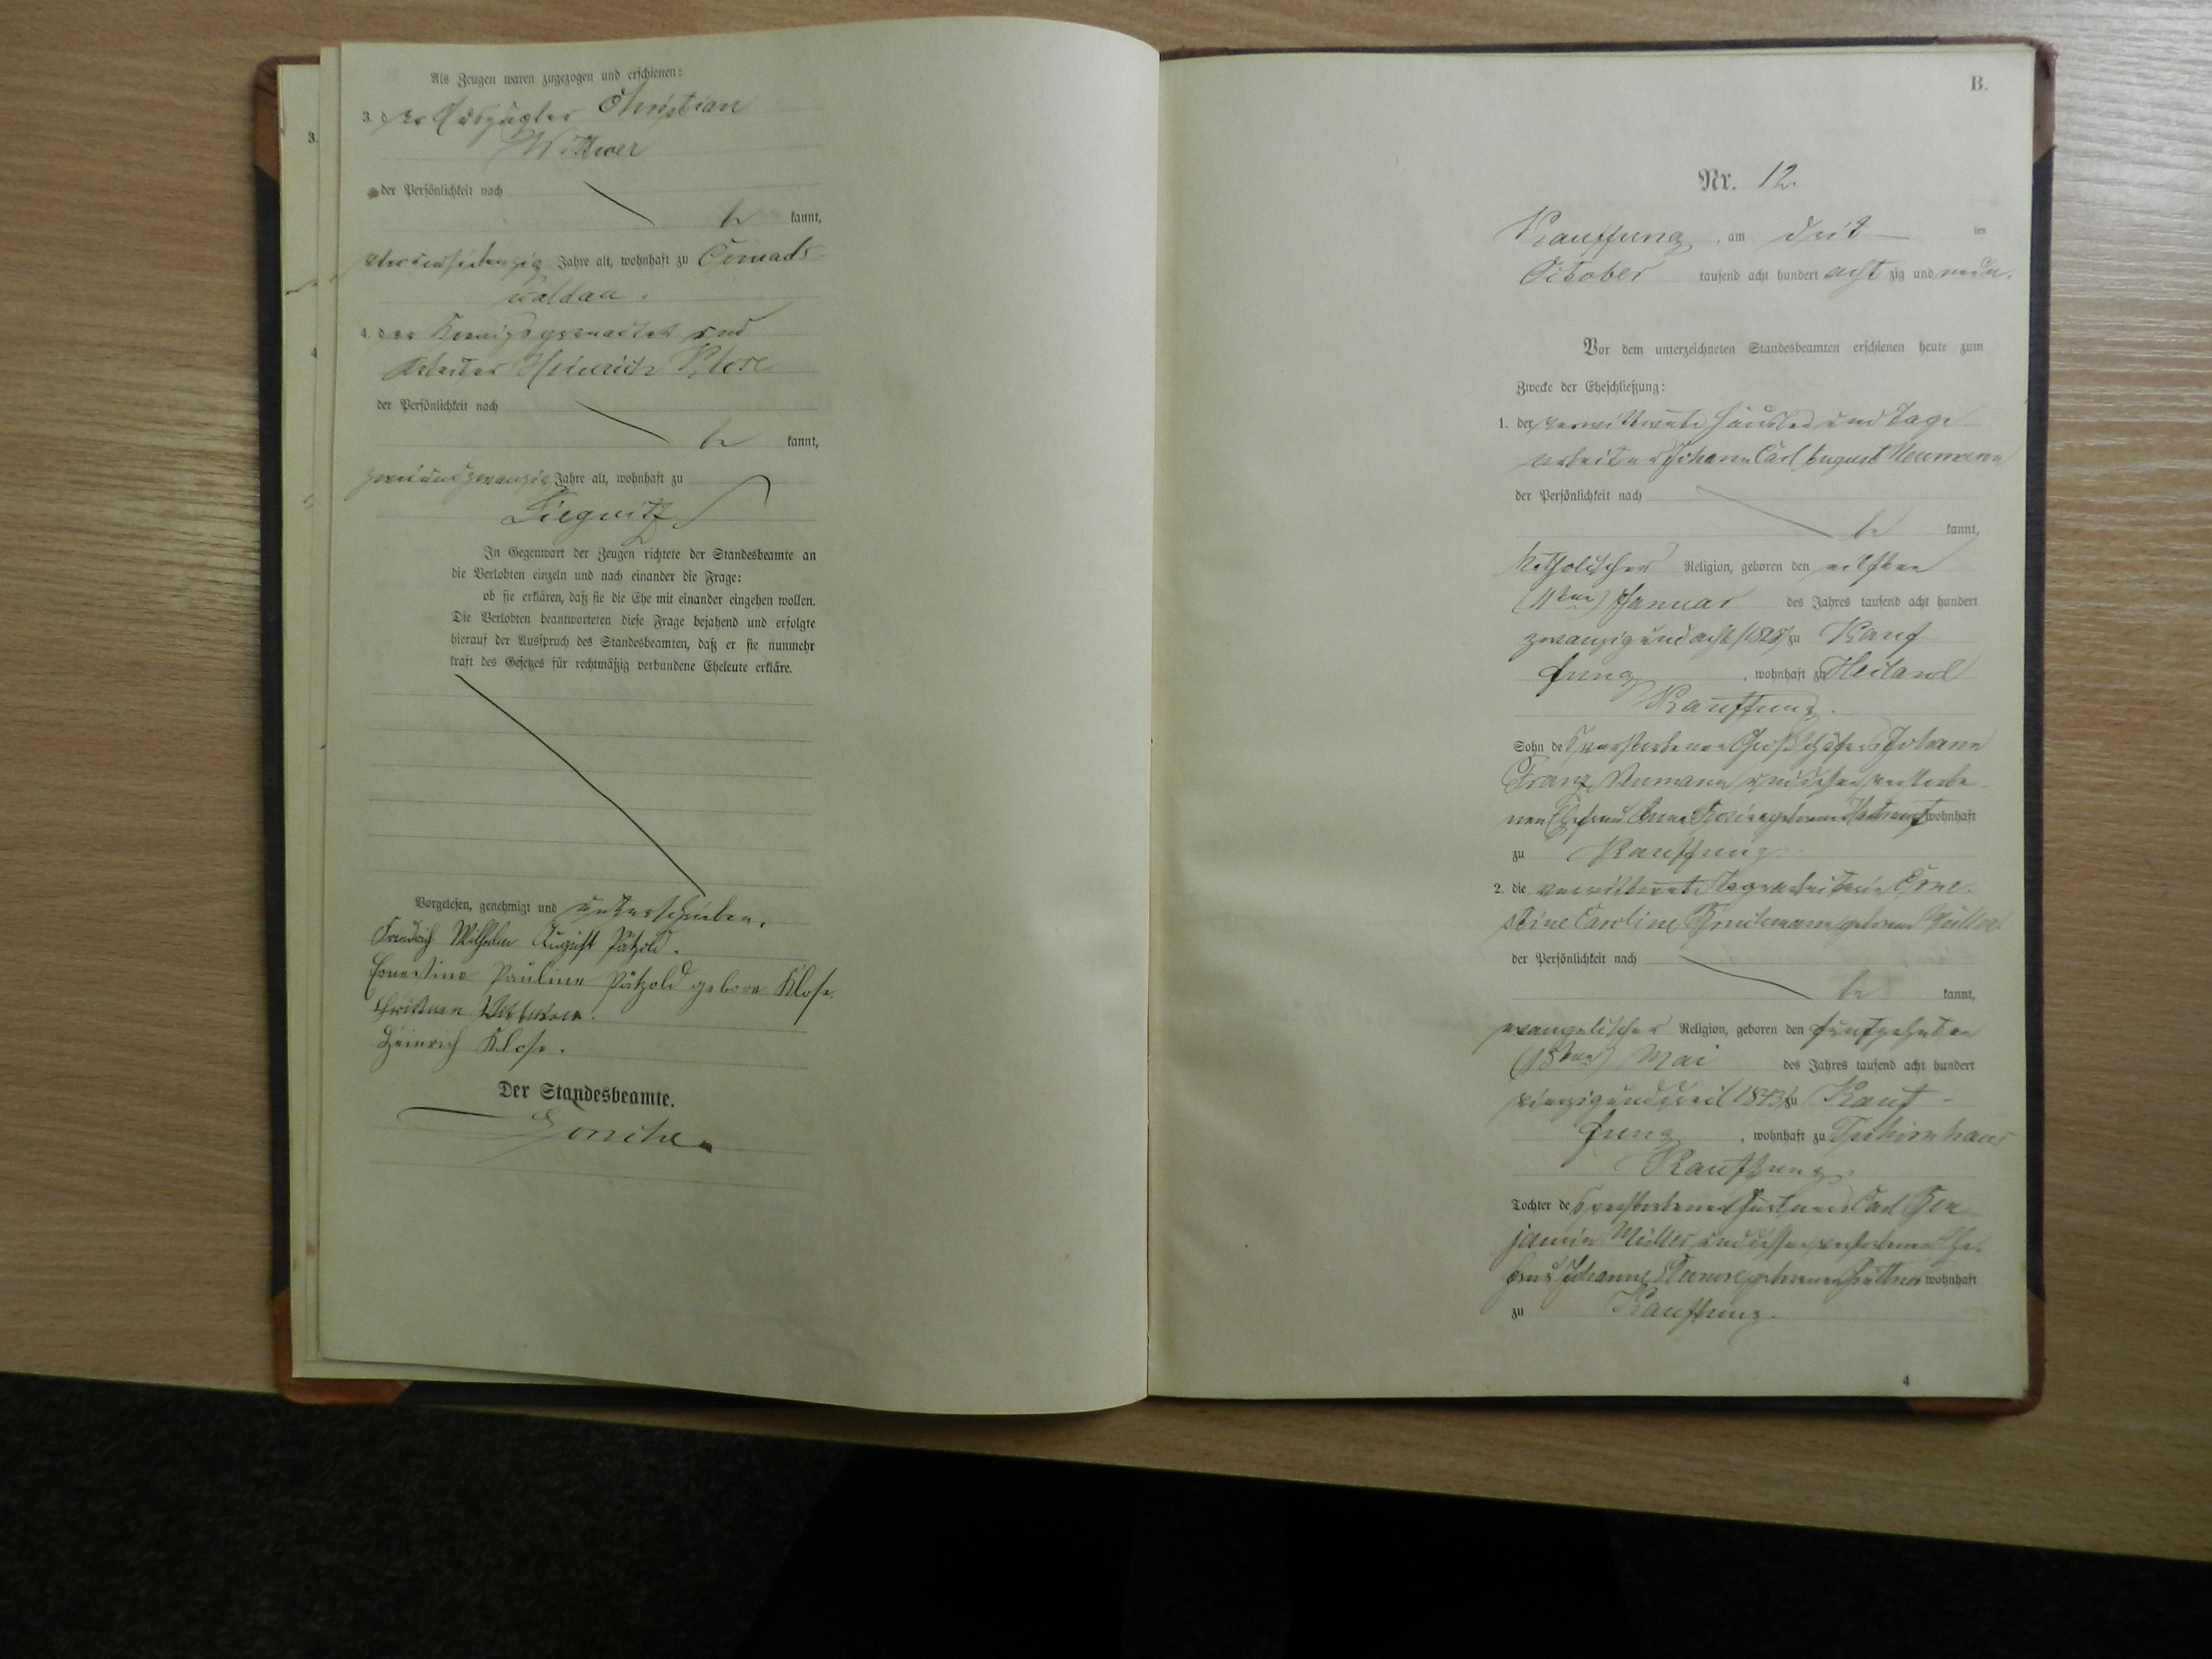 Als Zeugen waren zugezogen und erschienen:
3. der Auszügler Christian
Wittwer
der Persönlichkeit nach
be kannt,
Jahre alt, wohnhaft zu Conrads-
waldau.
4. der und
Arbeiter Heinrich Klose
der Persönlichkeit nach
be kannt,
zweiundzwanzig Jahre alt, wohnhaft zu
Liegnitz
In Gegenwart der Zeugen richtete der Standesbeamte an
die Verlobten einzeln und nach einander die Frage:
ob sie erklären, daß sie die Ehe mit einander eingehen wollen.
Die Verlobten beantworteten diese Frage bejahend und erfolgte
hierauf der Ausspruch des Standesbeamten, daß er sie nunmehr
kraft des Gesetzes für rechtmäßig verbundene Eheleute erkläre.
Vorgelesen, genehmigt und unterschrieben.
Friedrich Wilhelm August Pätzold.
Ernestine Pauline Pätzold geborne Klose.
Christian Wittwer.
Heinrich Klose.
Der Standesbeamte.
3.
4
B.
Nr. 12.
Kauffung, am ten
October tausend acht hundert acht zig und neun.
Vor dem unterzeichneten Standesbeamten erschienen heute zum
Zwecke der Eheschließung:
1. der verwittwete Häusler und Tage-
arbeiter Johann Carl August Neumann
der Persönlichkeit nach
be kannt,
katholischer Religion, geboren den eilften
(11ten) Januar des Jahres tausend acht hundert
zwanzig und acht (1828) zu Kauf
fung, wohnhaft zu Heiland
Kauffung.
Sohn des verstorbenen Johann
Franz Neumann und dessen verstorbe-
nen Ehefrau Anna geborene wohnhaft
zu Kauffung.
2. die verwittwete Tagearbeiterin Erne-
stine Caroline geborene Müller
der Persönlichkeit nach
be kannt,
evangelischer Religion, geboren den fünfzehnten
(15ten) Mai des Jahres tausend acht hundert
vierzig und drei (1843) zu Kauf-
fung, wohnhaft zu Tschirnhaus
Kauffung.
Tochter des verstorbenen Carl Ben
jamin Müller und dessen verstorbenen Ehe-
frau Johanne Eleonore geborenen wohnhaft
zu Kauffung.
4